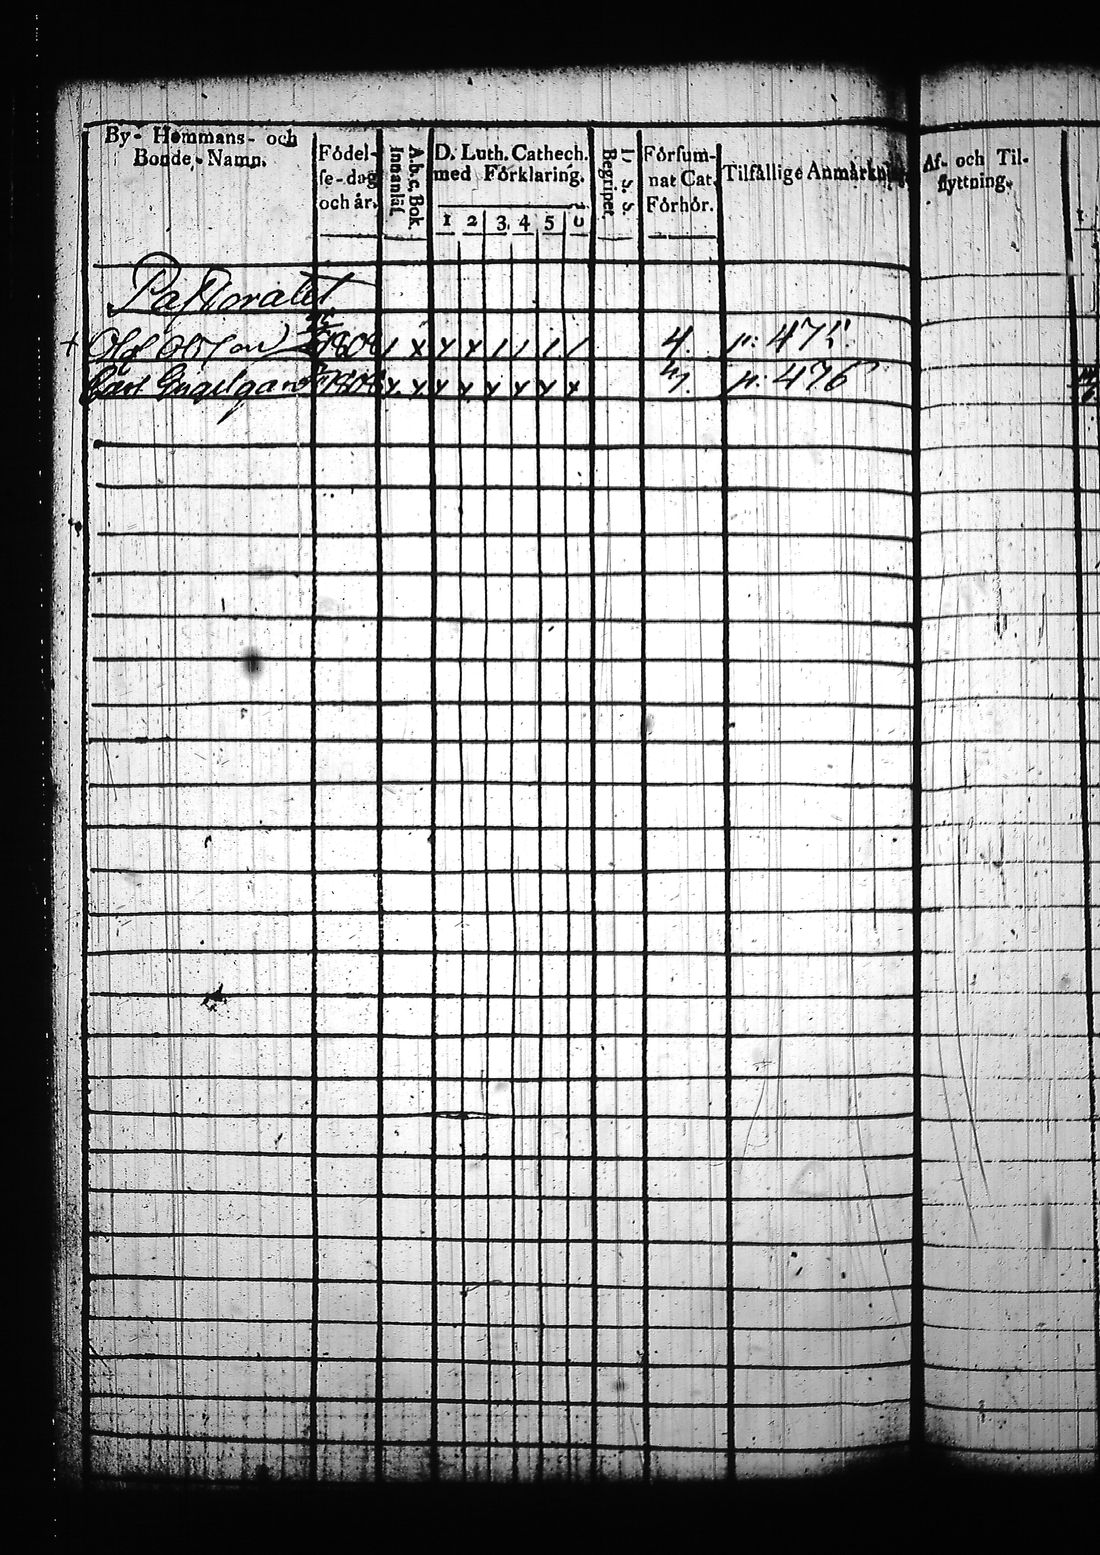 By- Hemmans- och
Bonde-Namn.
Födel-
se-dag
och år.
A.b.c. Bok
Innanläs.
D. Luth. Cathech.
med Förklaring.
1 2 3 4 5
Begripet
Försum-
nat Cat.
Förhör.
Tilfällige Anmärkn
Af- och Til-
flyttning.
Pastoratet
+ Olof Olofson 1808 / x x x / / / / 4. p. 475.
Carl x x x x x x x x p. 476